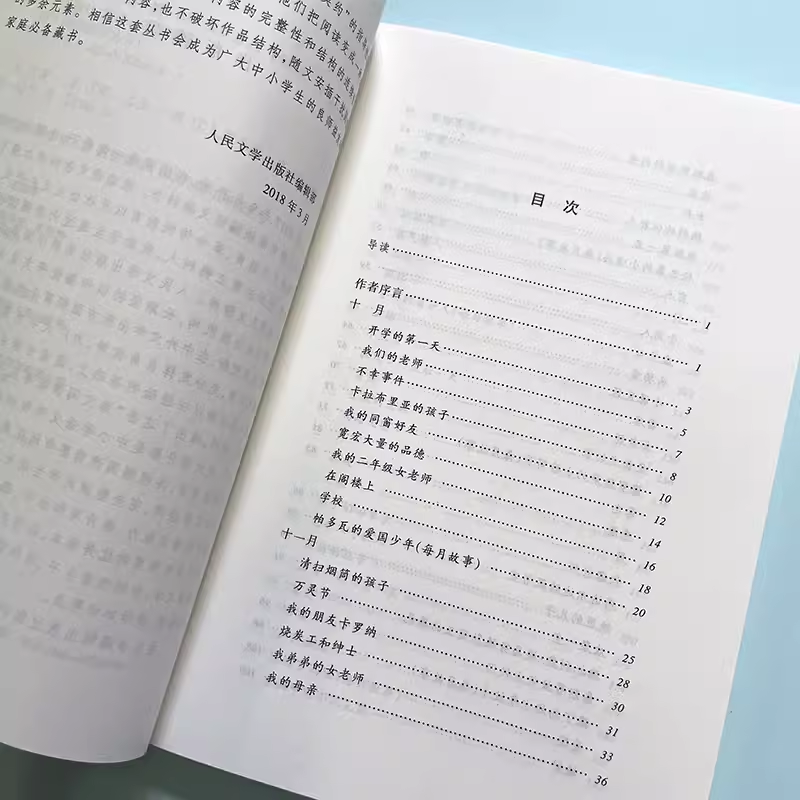 他们把阅读变成
内容的完整性和结构的连
容，也不破坏作品结构，随文安插干扰
的多余元素。相信这套丛书会成为广大中小学生的良师益
家庭必备藏书。
人民文学出版社编辑部
2018年3月
目 次
导读 1
作者序言 1
十 月
开学的第一天 3
我们的老师 5
不幸事件 7
卡拉布里亚的孩子 8
我的同窗好友 10
宽宏大量的品德 12
我的二年级女老师 14
在阁楼上 16
学校 18
帕多瓦的爱国少年(每月故事) 20
十一月
清扫烟筒的孩子 25
万灵节 28
我的朋友卡罗纳 30
烧炭工和绅士 31
我弟弟的女老师 33
我的母亲 36